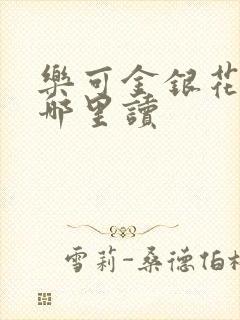 樂可金銀花
哪里讀
雪莉-桑德伯格